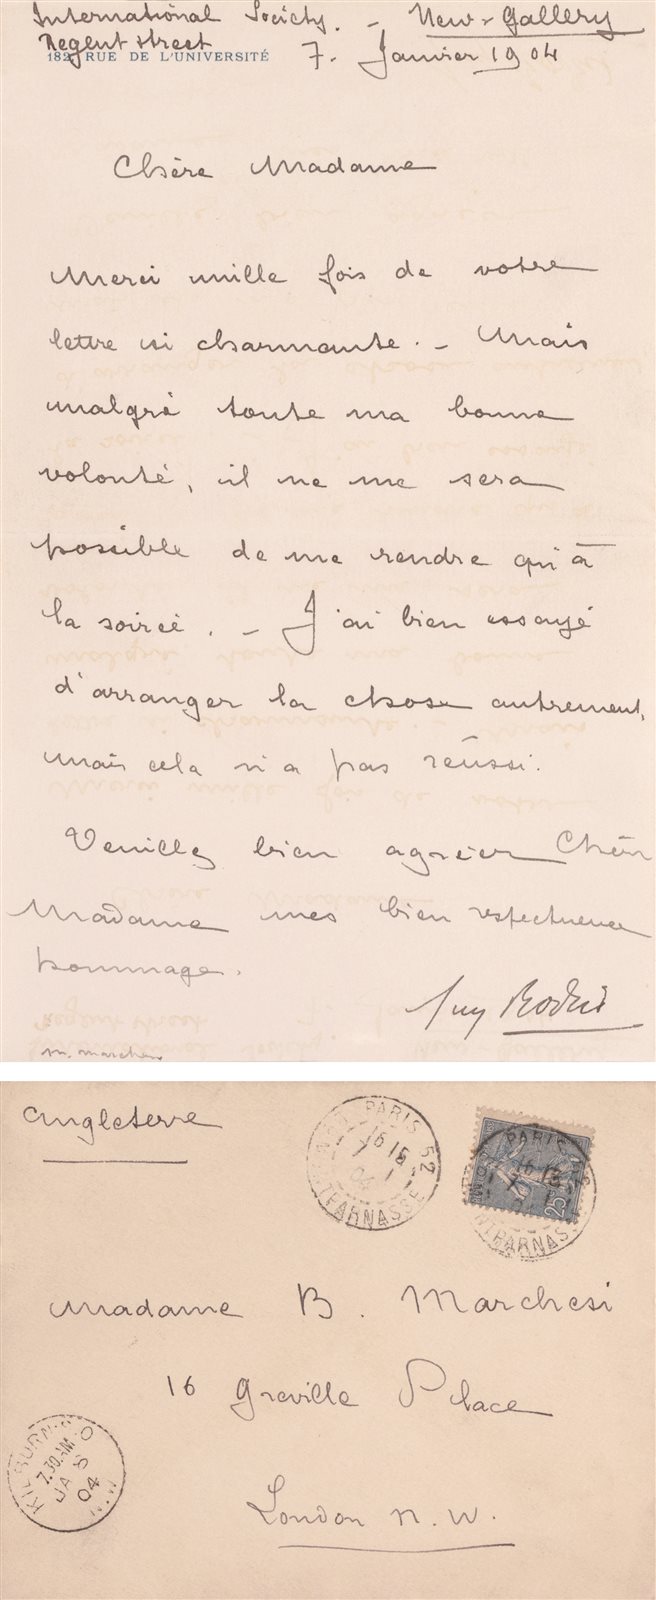 International Society. - New-Gallery
Regent street
182, RUE DE L'UNIVERSITÉ
7. Janvier 1904
Chère Madame
Merci mille fois de votre
lettre si charmante. - Mais
malgré toute ma bonne
volonté, il ne me sera
possible de me rendre qu'à
la soirée. - J'ai bien essayé
d'arranger la chose autrement,
mais cela n'a pas réussi.
Veuillez bien agréer Chère
Madame mes bien respectueux
hommage.
Aug Rodin
Angleterre
PARIS 52
16 15
7 1
04
R. MONTPARNASSE
PARIS 52
16 15
7
04
MONTPARNASSE
25
Madame B. Marchesi
16 Greville Place
London N.W.
KILBURN
7.30 AM
JA 8
04
N.W.